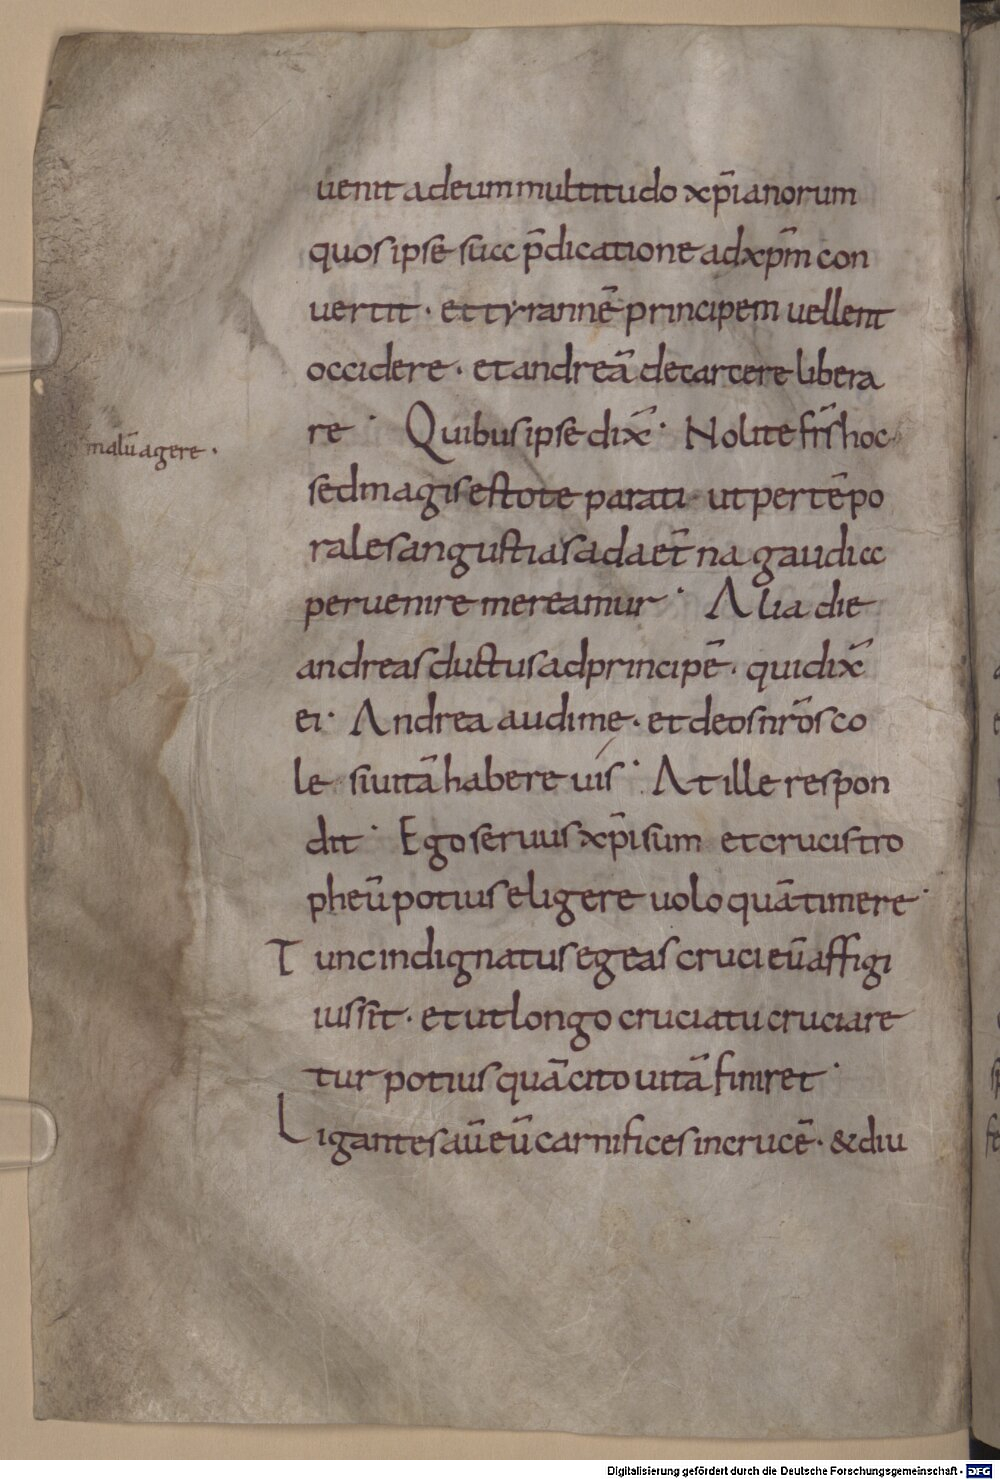 uenit adeum multitudo xp̄ianorum
quos ipse sua p̄dicatione adxp̄m con
uertit · et tyrannē principem uellent
occidere · et andreā decarcere libera
re · Quibus ipse dix̄ · Nolite fr̄s hoc
malū agere ·
sed magis estote parati · ut per tēpo
rales angustias ad aet̄na gaudia
peruenire mereamur · Alia die
andreas ductus ad principē · qui dix̄
ei · Andrea audi me · et deos nr̄os co
le si uitā habere uis · At ille respon
dit · Ego seruus xp̄i sum et crucis tro
pheū potius eligere uolo quā timere ·
Tunc indignatus egeas cruci eū affigi
iussit · et ut longo cruciatu cruciare
tur potius quā cito uitā finiret ·
Ligantes aū eū carnifices in crucē · & diu
Digitalisierung gefördert durch die Deutsche Forschungsgemeinschaft - DFG